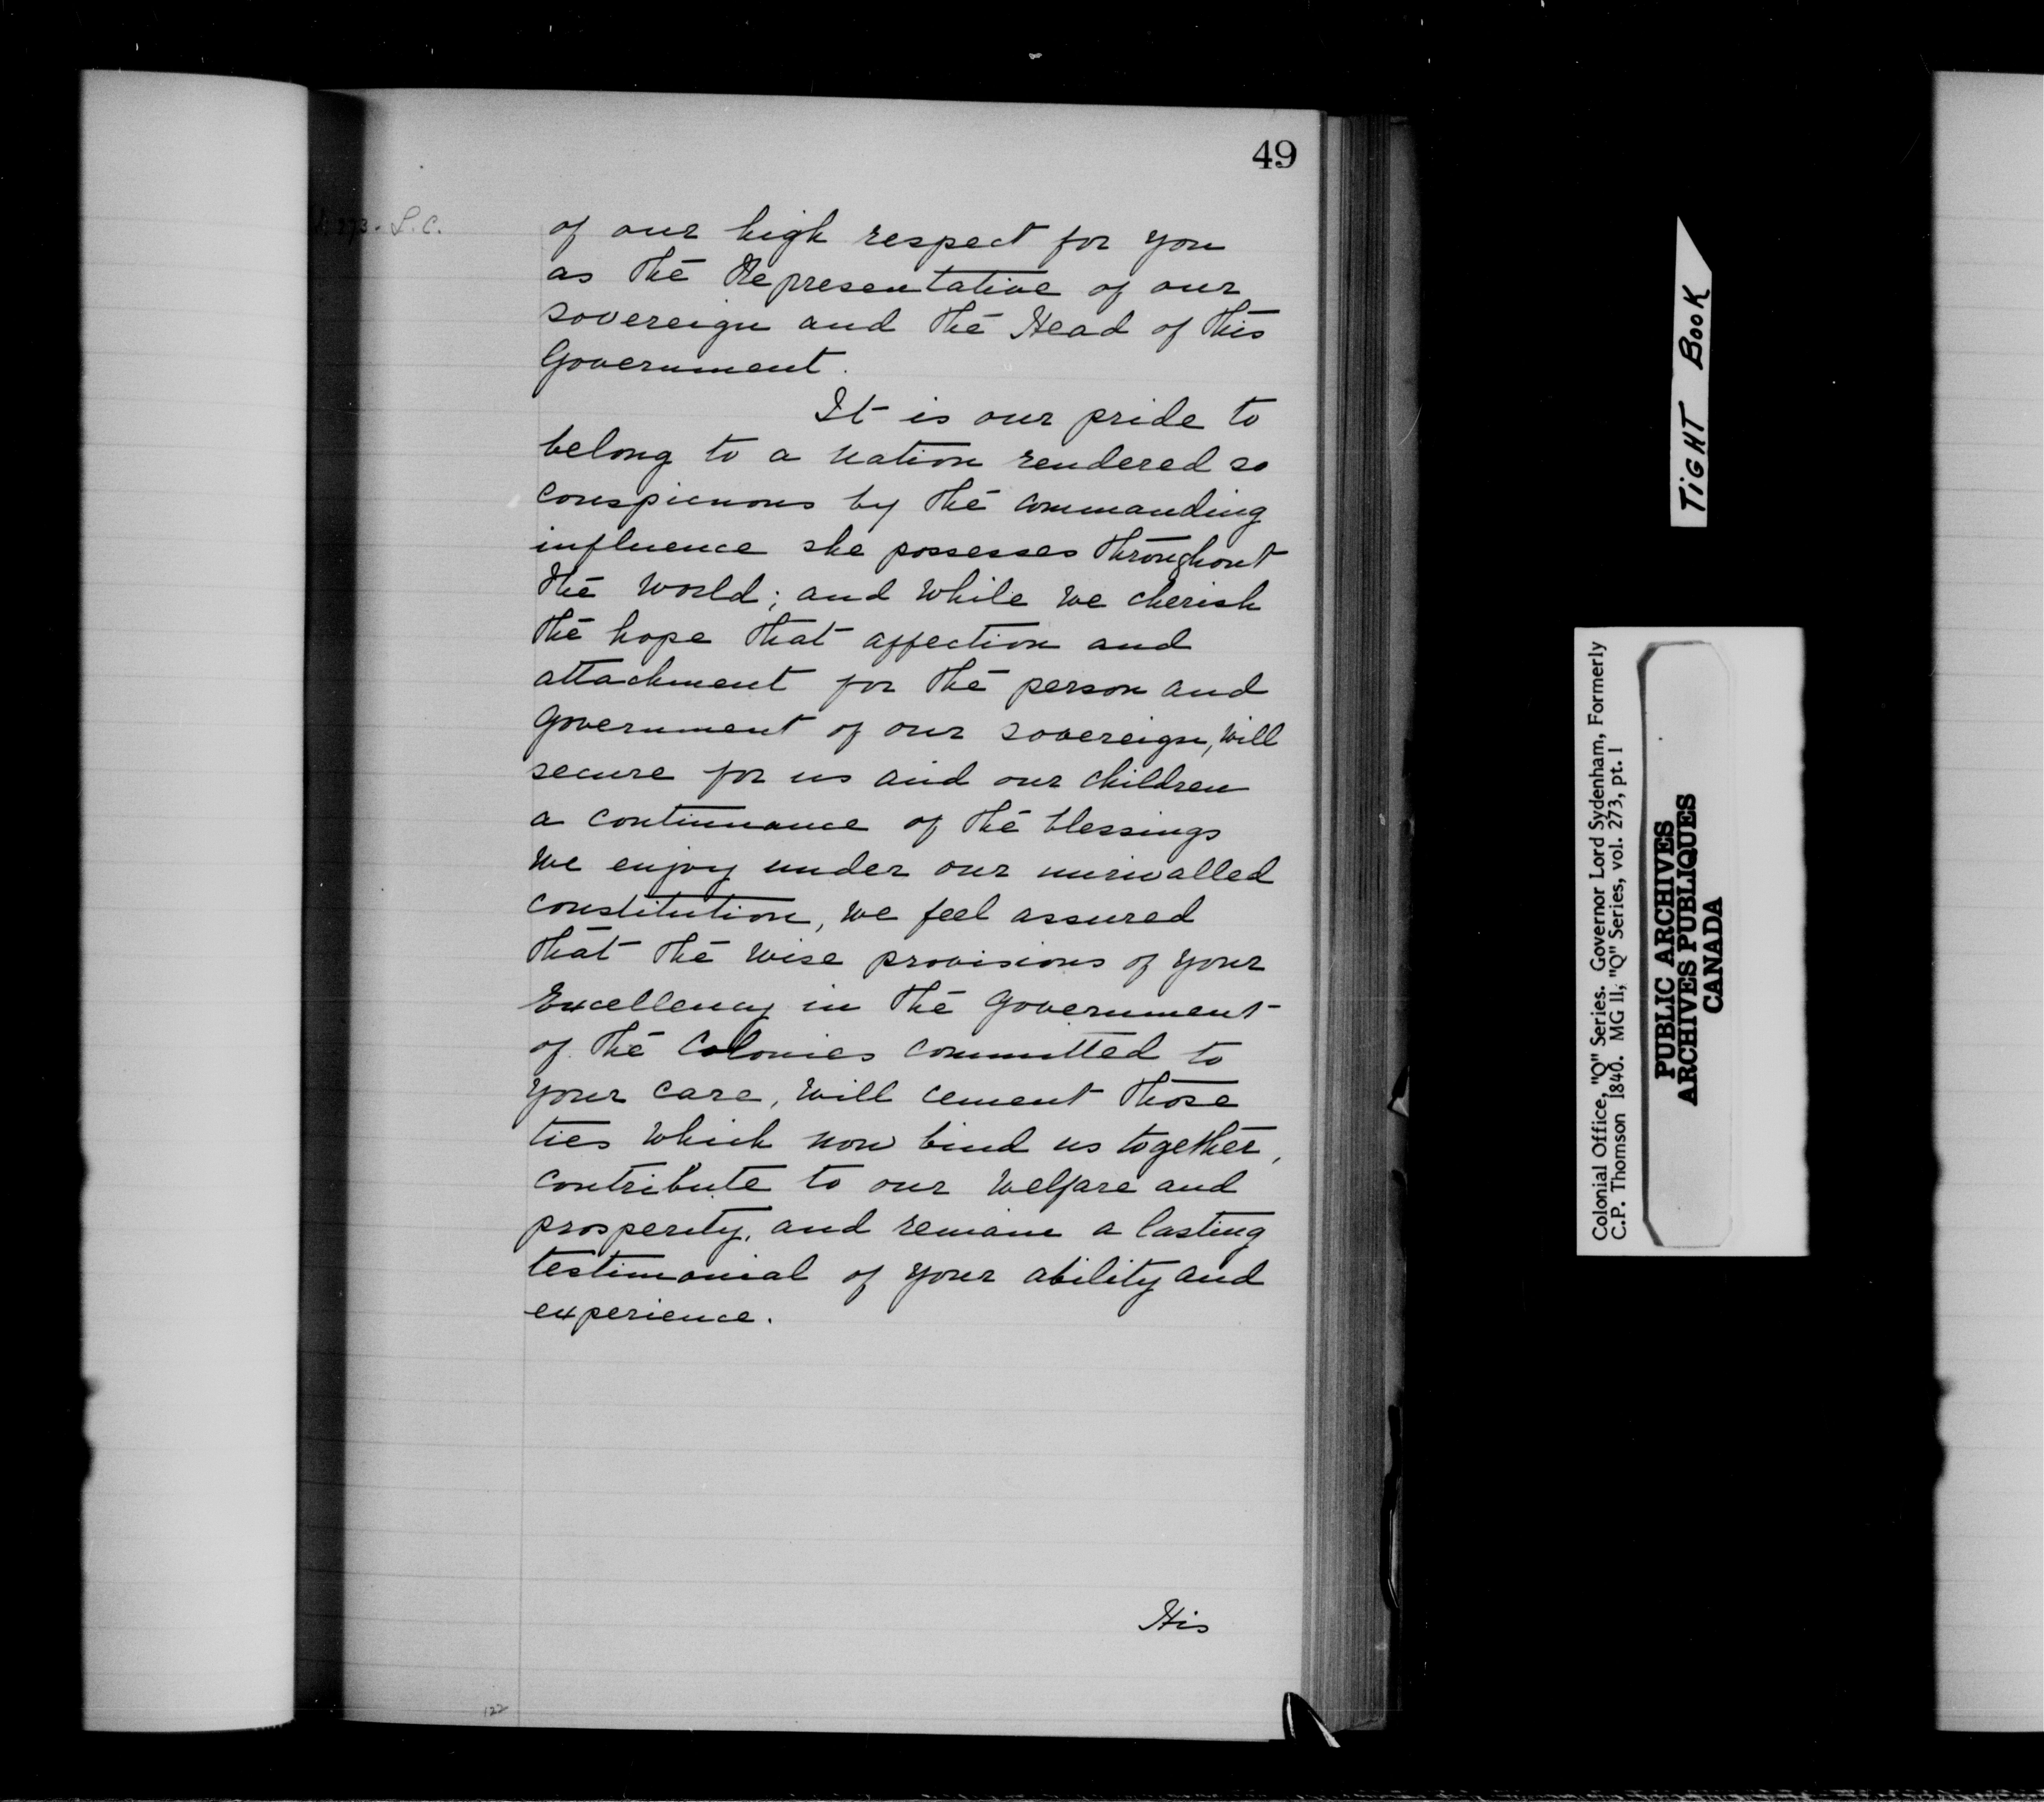 49
273 - L.C.
of our high respect for you
as the Representative of our
sovereign and the Head of this
Government.
It is our pride to
belong to a nation rendered so
conspicuous by the commanding
influence she possesses throughout
the world; and while we cherish
the hope that affection and
attachment for the person and
government of our sovereign, will
secure for us and our children
a continuance of the blessings
we enjoy under our unrivalled
constitution, we feel assured
that the wise provisions of your
Excellency in the Government
of the Colonies committed to
your care, will cement those
ties which now bind us together,
contribute to our welfare and
prosperity, and remain a lasting
testimonial of your ability and
experience.
His
122
TIGHT BOOK
Colonial Office, "Q" Series. Governor Lord Sydenham, Formerly
C.P. Thomson 1840. MG 11, "Q" Series, vol. 273, pt. 1
PUBLIC ARCHIVES
ARCHIVES PUBLIQUES
CANADA